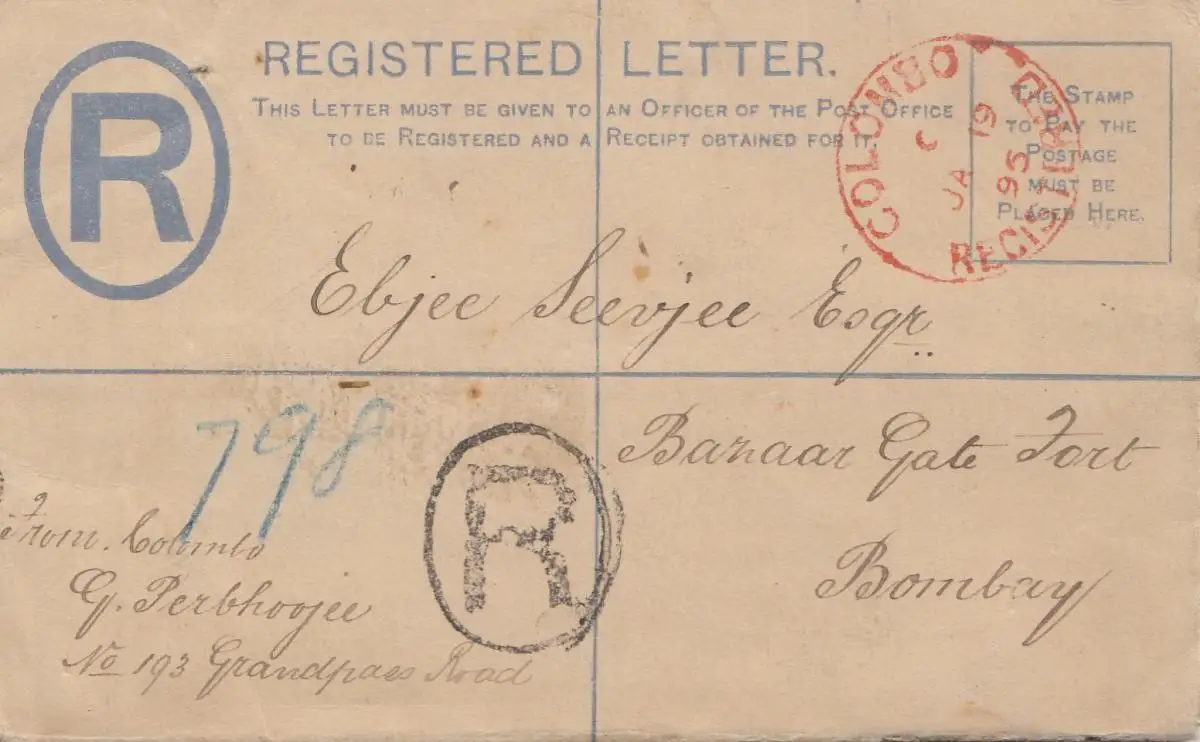 R
REGISTERED LETTER.
THIS LETTER MUST BE GIVEN TO AN OFFICER OF THE POST OFFICE
TO BE REGISTERED AND A RECEIPT OBTAINED FOR IT.
THE STAMP
TO PAY THE
POSTAGE
MUST BE
PLACED HERE.
COLOMBO
C
JA 19
95
REGISTERED
Ebjee Seevjee Esqr
Bazaar Gate Fort
Bombay
798
R
From. Colombo
G. Perbhoojee
No 193 Grandpaes Road